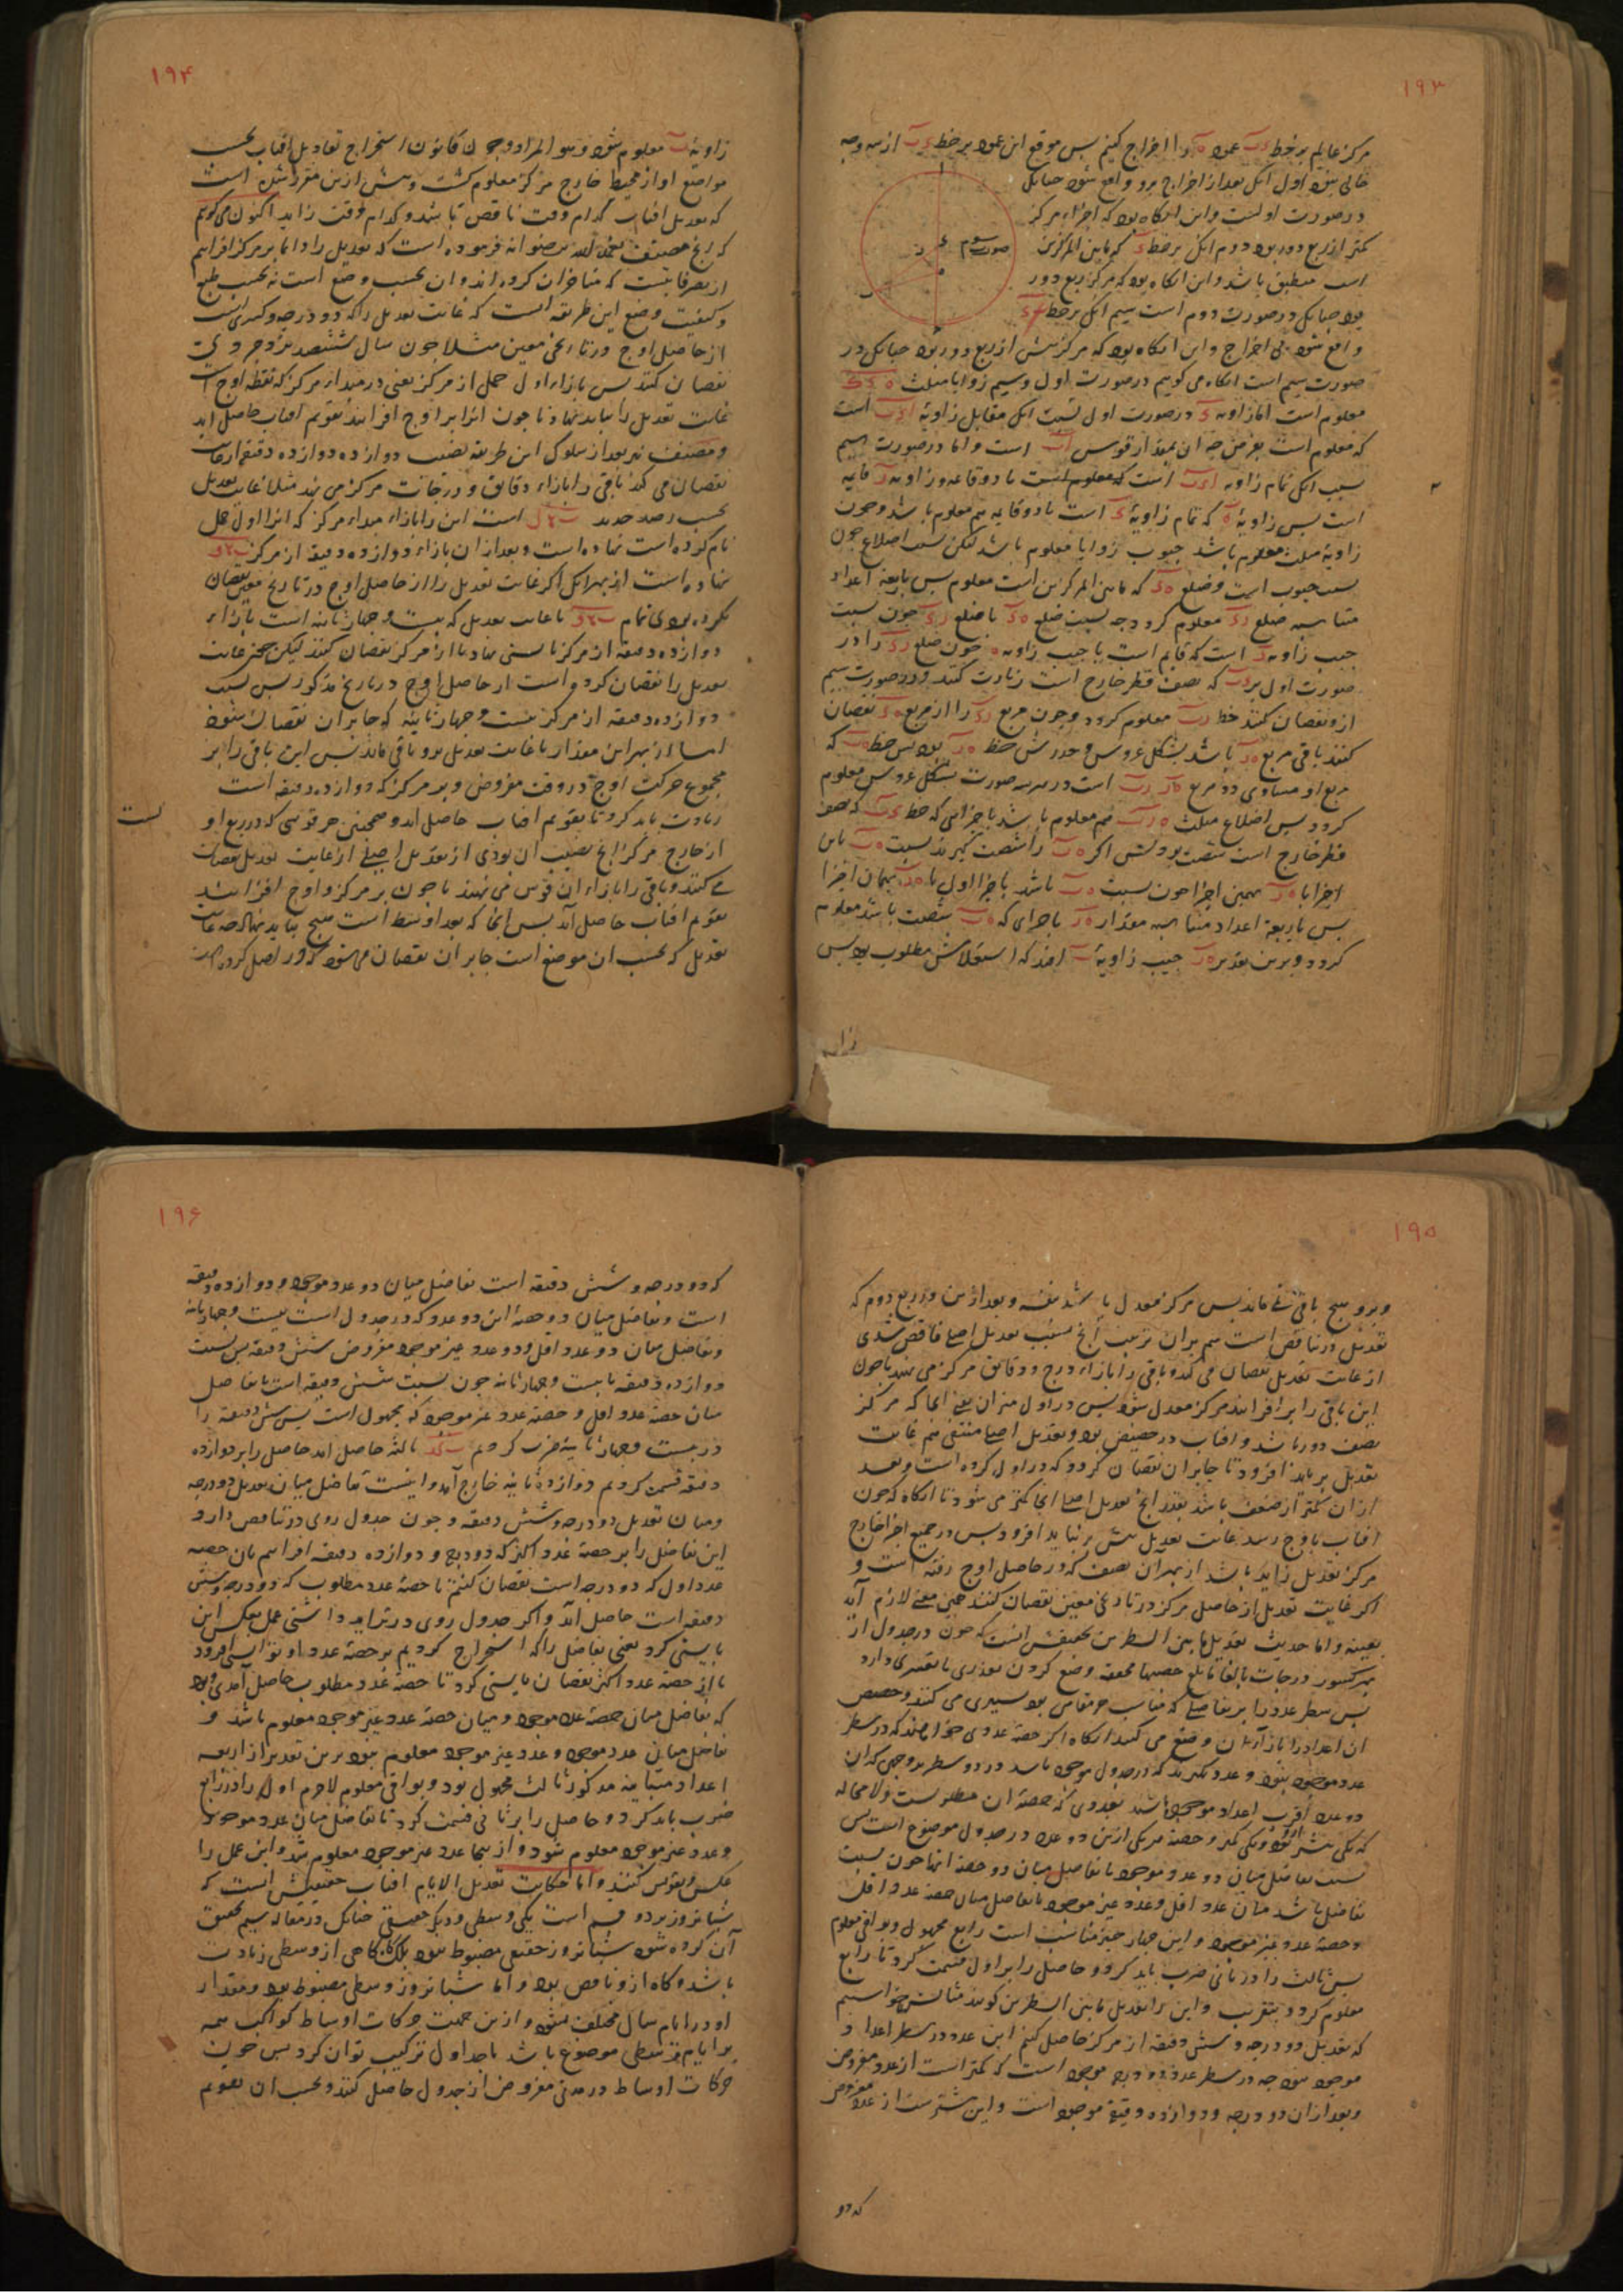 ۱۹۳
مرکز عالم بر خط عمود اخراج کنیم پس موقع این عمود بر خط از سه وجه
خالی نبود اول آنکه بعد از اخراج برو واقع شود چنانکه
در صورت اولست و این انکاه بود که اجزاء مرکز
کمتر از ربع دور بود دوم آنکه بر خط که مابین المرکزین
است منطبق باشد و این انکاه بود که مرکز ربع دور
بود چنانکه در صورت دوم است سیم آنکه بر خط
صورت سوم
واقع شود بی اخراج و این انکاه بود که مرکز بیش از ربع دور بود چنانکه در
صورت سیم است انکاه می کوییم در صورت اول و سیم زوایا مثلث
معلوم است اما زاویه در صورت اول بسبب آنکه مقابل زاویه است
که معلوم است بفرض چه آن بمقدار قوس است و اما در صورت سیم
سبب آنکه تمام زاویه است که معلوم است تا دو قایمه و زاویه قایمه
است پس زاویه که تمام زاویه است تا دو قایمه هم معلوم باشد و چون
زاویه مثلث معلوم باشد جیوب زوایا معلوم باشد لیکن نسبت اضلاع چون
نسبت جیوب است و ضلع که مابین المرکزین است معلوم پس باربعه اعداد
متناسبه ضلع معلوم کردد چه نسبت ضلع با ضلع چون نسبت
جیب زاویه است که قایم است با جیب زاویه چون ضلع را در
صورت اول بر که نصف قطر خارج است زیادت کنند و در صورت سیم
ازو نقصان کنند خط معلوم کردد و چون مربع را از مربع نقصان
کنند باقی مربع باشد بشکل عروس و جذرش خط بود پس خط که
مربع او مساوی دو مربع است در هر سه صورت بشکل عروس معلوم
کردد پس اضلاع مثلث هم معلوم باشد باجزائی که خط که نصف
قطر خارج است شصت بود پس اکر را شصت کیرند نسبت باین
اجزا با بهمین اجزا چون نسبت باشد باجزا اول با بهمان اجزا
پس باربعه اعداد متناسبه مقدار باجزای که شصت باشد معلوم
کردد و برین تقدیر جیب زاویه افتد که استعلامش مطلوب بود پس
زاویه
۱۹۴
زاویه معلوم شود و هو المراد و چون قانون استخراج تعادیل افتاب بحسب
مواضع او از محیط خارج مرکز معلوم کشت و پیش ازین مقرر شده است
که تعدیل افتاب کدام وقت ناقص باشد و کدام وقت زاید اکنون می کوییم
که آنچ مصنف فرموده است که تعدیل را دایما بر مرکز افزاییم
از تصرفاتیست که متاخران کرده اند و ان بحسب وضع است نه بحسب طبع
و کیفیت وضع این طریقه انست که غایت تعدیل را که دو درجه و کسری است
از حاصل اوج در تاریخی معین مثلا چون سال ششصد یزدجردی
نقصان کنند پس بازاء اول حمل از مرکز یعنی در مبداء مرکز که نقطه اوج است
غایت تعدیل را بباید نهاد تا چون انرا بر اوج افزایند تقویم افتاب حاصل اید
و مصنف نیز بعد از سلوک این طریقه بنصیب دوازده دوازده دقیقه از غایت
نقصان می کند باقی را بازاء دقایق و درجات مرکز می نهد مثلا غایت تعدیل
بحسب رصد جدید است این را بازاء مبداء مرکز که انرا اول حمل
نام کرده است نهاده است و بعد ازان بازاء دوازده دقیقه از مرکز
نهاده است از بهر انکه اکر غایت تعدیل را از حاصل اوج در تاریخ معین نقصان
نکرده بودی تمام تا غایت تعدیل که بیست و چهار ثانیه است بازاء
دوازده دقیقه از مرکز بایستی نهاد تا از مرکز نقصان کنند لیکن چون غایت
تعدیل را نقصان کرده است از حاصل اوج در تاریخ مذکور پس نسبت
دوازده دقیقه از مرکز بیست و چهار ثانیه که جابر ان نقصان شود
از بهر این مقدار با غایت تعدیل برو باقی ماند پس این باقی را بر
مجموع حرکت اوج در وقت مفروض و بر مرکز که دوازده دقیقه است
زیادت باید کرد تا تقویم افتاب حاصل اید و همچنین هر قوسی که در ربع او
از خارج مرکز آنچ نصیب ان بودی از تعدیل اصلی از غایت تعدیل نقصان
می کنند و باقی را بازاء ان قوس می نهند تا چون بر مرکز و اوج افزایند
تقویم افتاب حاصل آید پس آنجا که بعد اوسط است هیچ نباید نهاد چه غایت
تعدیل که بحسب ان موضع است جابر ان نقصان می شود که در اصل کرده
۱۹۵
و برو هیچ باقی نماند پس مرکز معدل باشد بنفسه و بعد ازین در ربع دوم که
تعدیل در تناقص است هم بران ترتیب آنچ نصیب تعدیل اصلی ناقص شدی
از غایت تعدیل نقصان می کند و باقی را بازاء درج و دقایق مرکز می نهد تا چون
این باقی را برو افزایند مرکز معدل شود پس در اول میزان یعنی انجا که مرکز
نصف دور باشد و افتاب در حضیض بود و تعدیل اصلی منتفی هم غایت
تعدیل برباید افزود تا جابر ان نقصان کردد که در اول کرده است و بعد
ازان کمتر از ضعف باشد بقدر آنچ تعدیل اصلی انجا کمتر می شود تا انکاه که چون
افتاب باوج رسد غایت تعدیل بیش برنباید افزود پس در جمیع اجزا خارج
مرکز تعدیل زاید باشد از بهر ان نصف که در حاصل اوج رفته است و
اکر غایت تعدیل از حاصل مرکز در تاریخی معین نقصان کنند همین معنی لازم آید
بعینه و اما حدیث تعدیل مابین السطرین تحقیقش انست که چون در جدول از
بهر کسور درجات بالغا مابلغ حصها محققه وضع کردن تعذری یا تعسری دارد
پس سطر عدد را بر تفاضلی که مناسب هر مقامی بود بسیری می کنند و حصص
ان اعداد را بازاء ان وضع می کنند انکاه اکر حصه عددی خواهند که در سطر
عدد موجود نبود دو عدد بکیرند که در جدول موجود باشد در دو سطر بر وجهی که ان
دو عدد اقرب اعداد موجوده باشند بعددی که حصه ان مطلوبست و لا محاله
که یکی بیشتر بود و یکی کمتر و حصه هر یکی ازین دو عدد در جدول موضوع است پس
نسبت تفاضل میان دو عدد موجود با تفاضل میان دو حصه انها چون نسبت
تفاضل باشد میان عدد اقل و عدد غیر موجود با تفاضل میان حصه عدد اقل
و حصه عدد غیر موجود و این چهار چیز متناسب است رابع مجهول و بواقی معلوم
پس ثالث را در ثانی ضرب باید کرد و حاصل را بر اول قسمت کرد تا رابع
معلوم کردد بتقریب و این را تعدیل مابین السطرین کویند مثالش خواستیم
که تعدیل دو درجه و شش دقیقه از مرکز حاصل کنیم این عدد در سطر اعداد
موجود نبود چه در سطر عدد دو درجه موجود است که کمتر است از عدد مفروض
و بعد ازان دو درجه و دوازده دقیقه موجود است و این بیشترست از عدد مفروض
که دو
۱۹۶
که دو درجه و شش دقیقه است تفاضل میان دو عدد موجود دوازده دقیقه
است و تفاضل میان دو حصه این دو عدد که در جدول است بیست و چهار ثانیه
و تفاضل میان دو عدد اقل و عدد غیر موجود مفروض شش دقیقه پس نسبت
دوازده دقیقه با بیست و چهار ثانیه چون نسبت شش دقیقه است با تفاضل
میان حصه عدد اقل و حصه عدد غیر موجود که مجهول است پس شش دقیقه را
در بیست و چهار ثانیه ضرب کردیم ثالثه حاصل امد حاصل را بر دوازده
دقیقه قسمت کردیم دوازده ثانیه خارج آمد و اینست تفاضل میان تعدیل دو درجه
و میان تعدیل دو درجه و شش دقیقه و چون جدول روی در تناقص دارد
این تفاضل را بر حصه عدد اکثر که دو درجه و دوازده دقیقه افزاییم یا از حصه
عدد اول که دو درجه است نقصان کنیم تا حصه عدد مطلوب که دو درجه و شش
دقیقه است حاصل آید و اکر جدول روی در تزاید داشتی عمل بعکس این
بایستی کرد یعنی تفاضل را که استخراج کردیم بر حصه عدد اول بایستی افزود
یا از حصه عدد اکثر نقصان بایستی کرد تا حصه عدد مطلوب حاصل آمدی و بود
که تفاضل میان حصه عدد موجود و میان حصه عدد غیر موجود معلوم باشد و
تفاضل میان عدد موجود و عدد غیر موجود معلوم نبود برین تقدیر از اربعه
اعداد متناسبه مذکور ثالث مجهول بود و بواقی معلوم لاجرم اول را در رابع
ضرب باید کرد و حاصل را بر ثانی قسمت کرد تا تفاضل میان عدد موجود
و عدد غیر موجود معلوم شود و از انجا عدد غیر موجود معلوم شد و این عمل را
عکس و تقویس کنند و اما حکایت تعدیل الایام افتاب حقیقتش انست که
شبانروز بر دو قسم است یکی وسطی و دیکر حقیقی چنانک در مقاله سیم تحقیق
آن کرده شود شبانروز حقیقی مضبوط نبود بلک کاهی از وسطی زیادت
باشد و کاه ازو ناقص بود و اما شبانروز وسطی مضبوط بود و مقدار
او در ایام سال مختلف نشود و ازین جهت حرکات اوساط کواکب همه
بر ایام وسطی موضوع باشد تا جداول ترکیب توان کرد پس چون
حرکات اوساط در مدتی مفروض از جدول حاصل کنند و بحسب ان تقویم